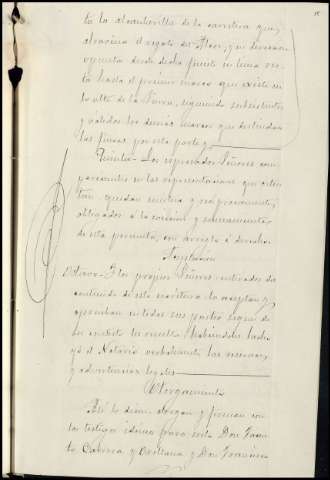 to la alcantarilla de la carretera que
atraviesa el regato del Haor, y en direccion
opuesta desde dicho punto en linea rec-
ta hasta el primer marco que existe en
lo alto de la Sierra, siguiendo subsistentes
y válidos los demás marcos que deslindan
las fincas por esta parte
Los expresados Señores com-
parecientes en las representaciones que osten-
tan, quedan mutua y reciprocamente
obligados á la eviccion y saneamiento
de esta permuta, con arreglo á derecho.
Aceptacion
Octavo- Los propios Señores enterados del
contenido de esta escritura la aceptan y
aprueban en todas sus partes segun
se resulta habiendoles hecho
yó el Notario verbalmente las reservas
y advertencias legales
Otorgamiento
Asi lo dicen, otorgan y firman con
los testigos idóneos para esto Don Juan
to Cabrera y Orellana y Don Francisco